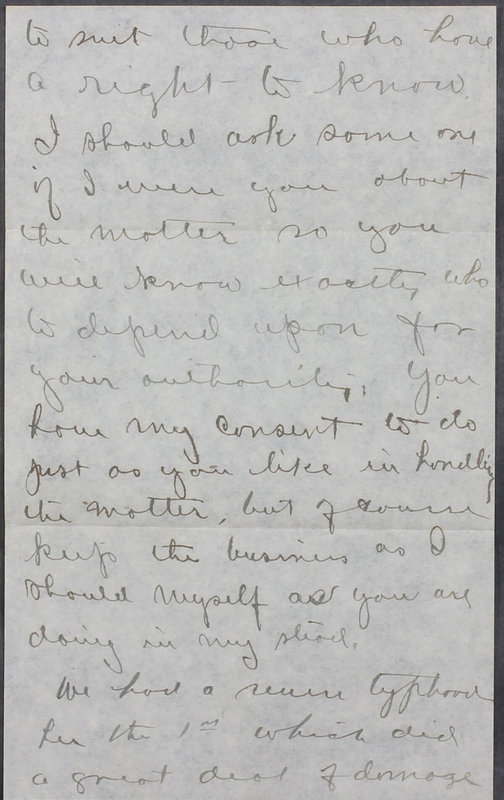 to suit those who have
a right to know
I should ask some one
if I were you about
the matter so you
will know exactly who
to depend upon for
your authority. You
have my consent to do
just as you like in handling
the matter, but of course
keep the business as I
should myself as you are
doing in my stead.
We had a severe typhoon
the 1st which did
a great deal of damage